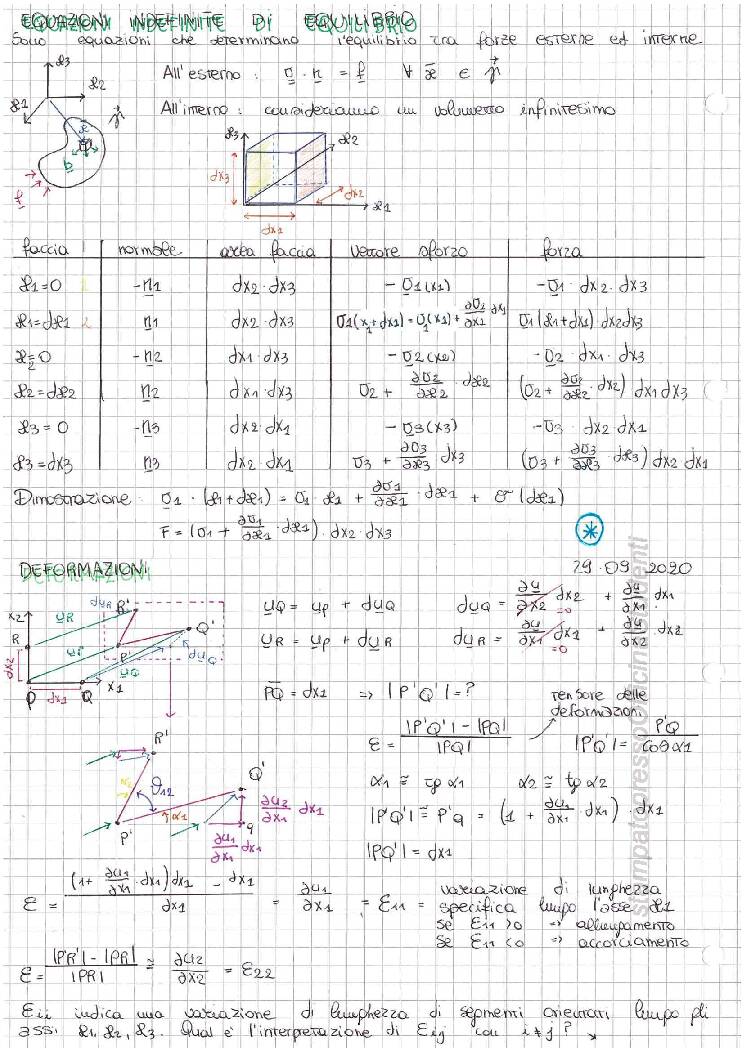 EQUAZIONI INDEFINITE DI EQUILIBRIO
Sono equazioni che determinano l'equilibrio tra forze esterne ed interne
x3
x2
x1
x
b
f
All'esterno : σ · n = f ∀ x ∈
All'interno : consideriamo un volumetto infinitesimo
x3
x2
x1
dx3
dx2
dx1
faccia normale area faccia vettore sforzo forza
x1=0 -n1 dx2·dx3 -σ1(x1) -σ1·dx2·dx3
x1=dx1 n1 dx2·dx3 σ1(x1+dx1)=σ1(x1)+ ∂σ1/∂x1 dx1 σ1(x1+dx1) dx2dx3
x2=0 -n2 dx1·dx3 -σ2(x2) -σ2·dx1·dx3
x2=dx2 n2 dx1·dx3 σ2 + ∂σ2/∂x2 · dx2 (σ2 + ∂σ2/∂x2 · dx2) dx1dx3
x3=0 -n3 dx2·dx1 -σ3(x3) -σ3·dx2·dx1
x3=dx3 n3 dx2·dx1 σ3 + ∂σ3/∂x3 dx3 (σ3 + ∂σ3/∂x3 · dx3) dx2 dx1
Dimostrazione : σ1·(x1+dx1) = σ1·x1 + ∂σ1/∂x1 · dx1 + σ(dx1)
F = (σ1 + ∂σ1/∂x1 · dx1)·dx2·dx3
*
DEFORMAZIONI
29.09.2020
x2
R
dx2
P
dx1
Q
x1
uR
duR
R'
P'
uP
uQ
Q'
duQ
uQ = uP + duQ duQ = ∂u/∂x2 dx2 + ∂u/∂x1 · dx1
=0
uR = uP + duR duR = ∂u/∂x1 dx1 + ∂u/∂x2 · dx2
=0
PQ = dx1 => |P'Q'| = ?
tensore delle
deformazioni
ε = |P'Q'| - |PQ| / |PQ| |P'Q'| = P'Q / cosα1
α1 ≅ tgα1 α2 ≅ tgα2
R'
ϑ12
α1
P'
Q'
q
∂u2/∂x1 dx1
∂u1/∂x1 dx1
|P'Q'| ≅ P'q = (1 + ∂u1/∂x1 · dx1) · dx1
|PQ'| = dx1
ε = (1+ ∂u1/∂x1 · dx1)dx1 - dx1 / dx1 = ∂u1/∂x1 = ε11 = variazione di lunghezza
specifica lungo l'asse x1
se ε11 >0 => allungamento
se ε11 <0 => accorciamento
ε = |PR'| - |PR| / |PR| ≅ ∂u2/∂x2 = ε22
εii indica una variazione di lunghezza di segmenti orientati lungo gli
assi x1, x2, x3. Qual è l'interpretazione di εij con i≠j ?
stampato presso Officina Studenti